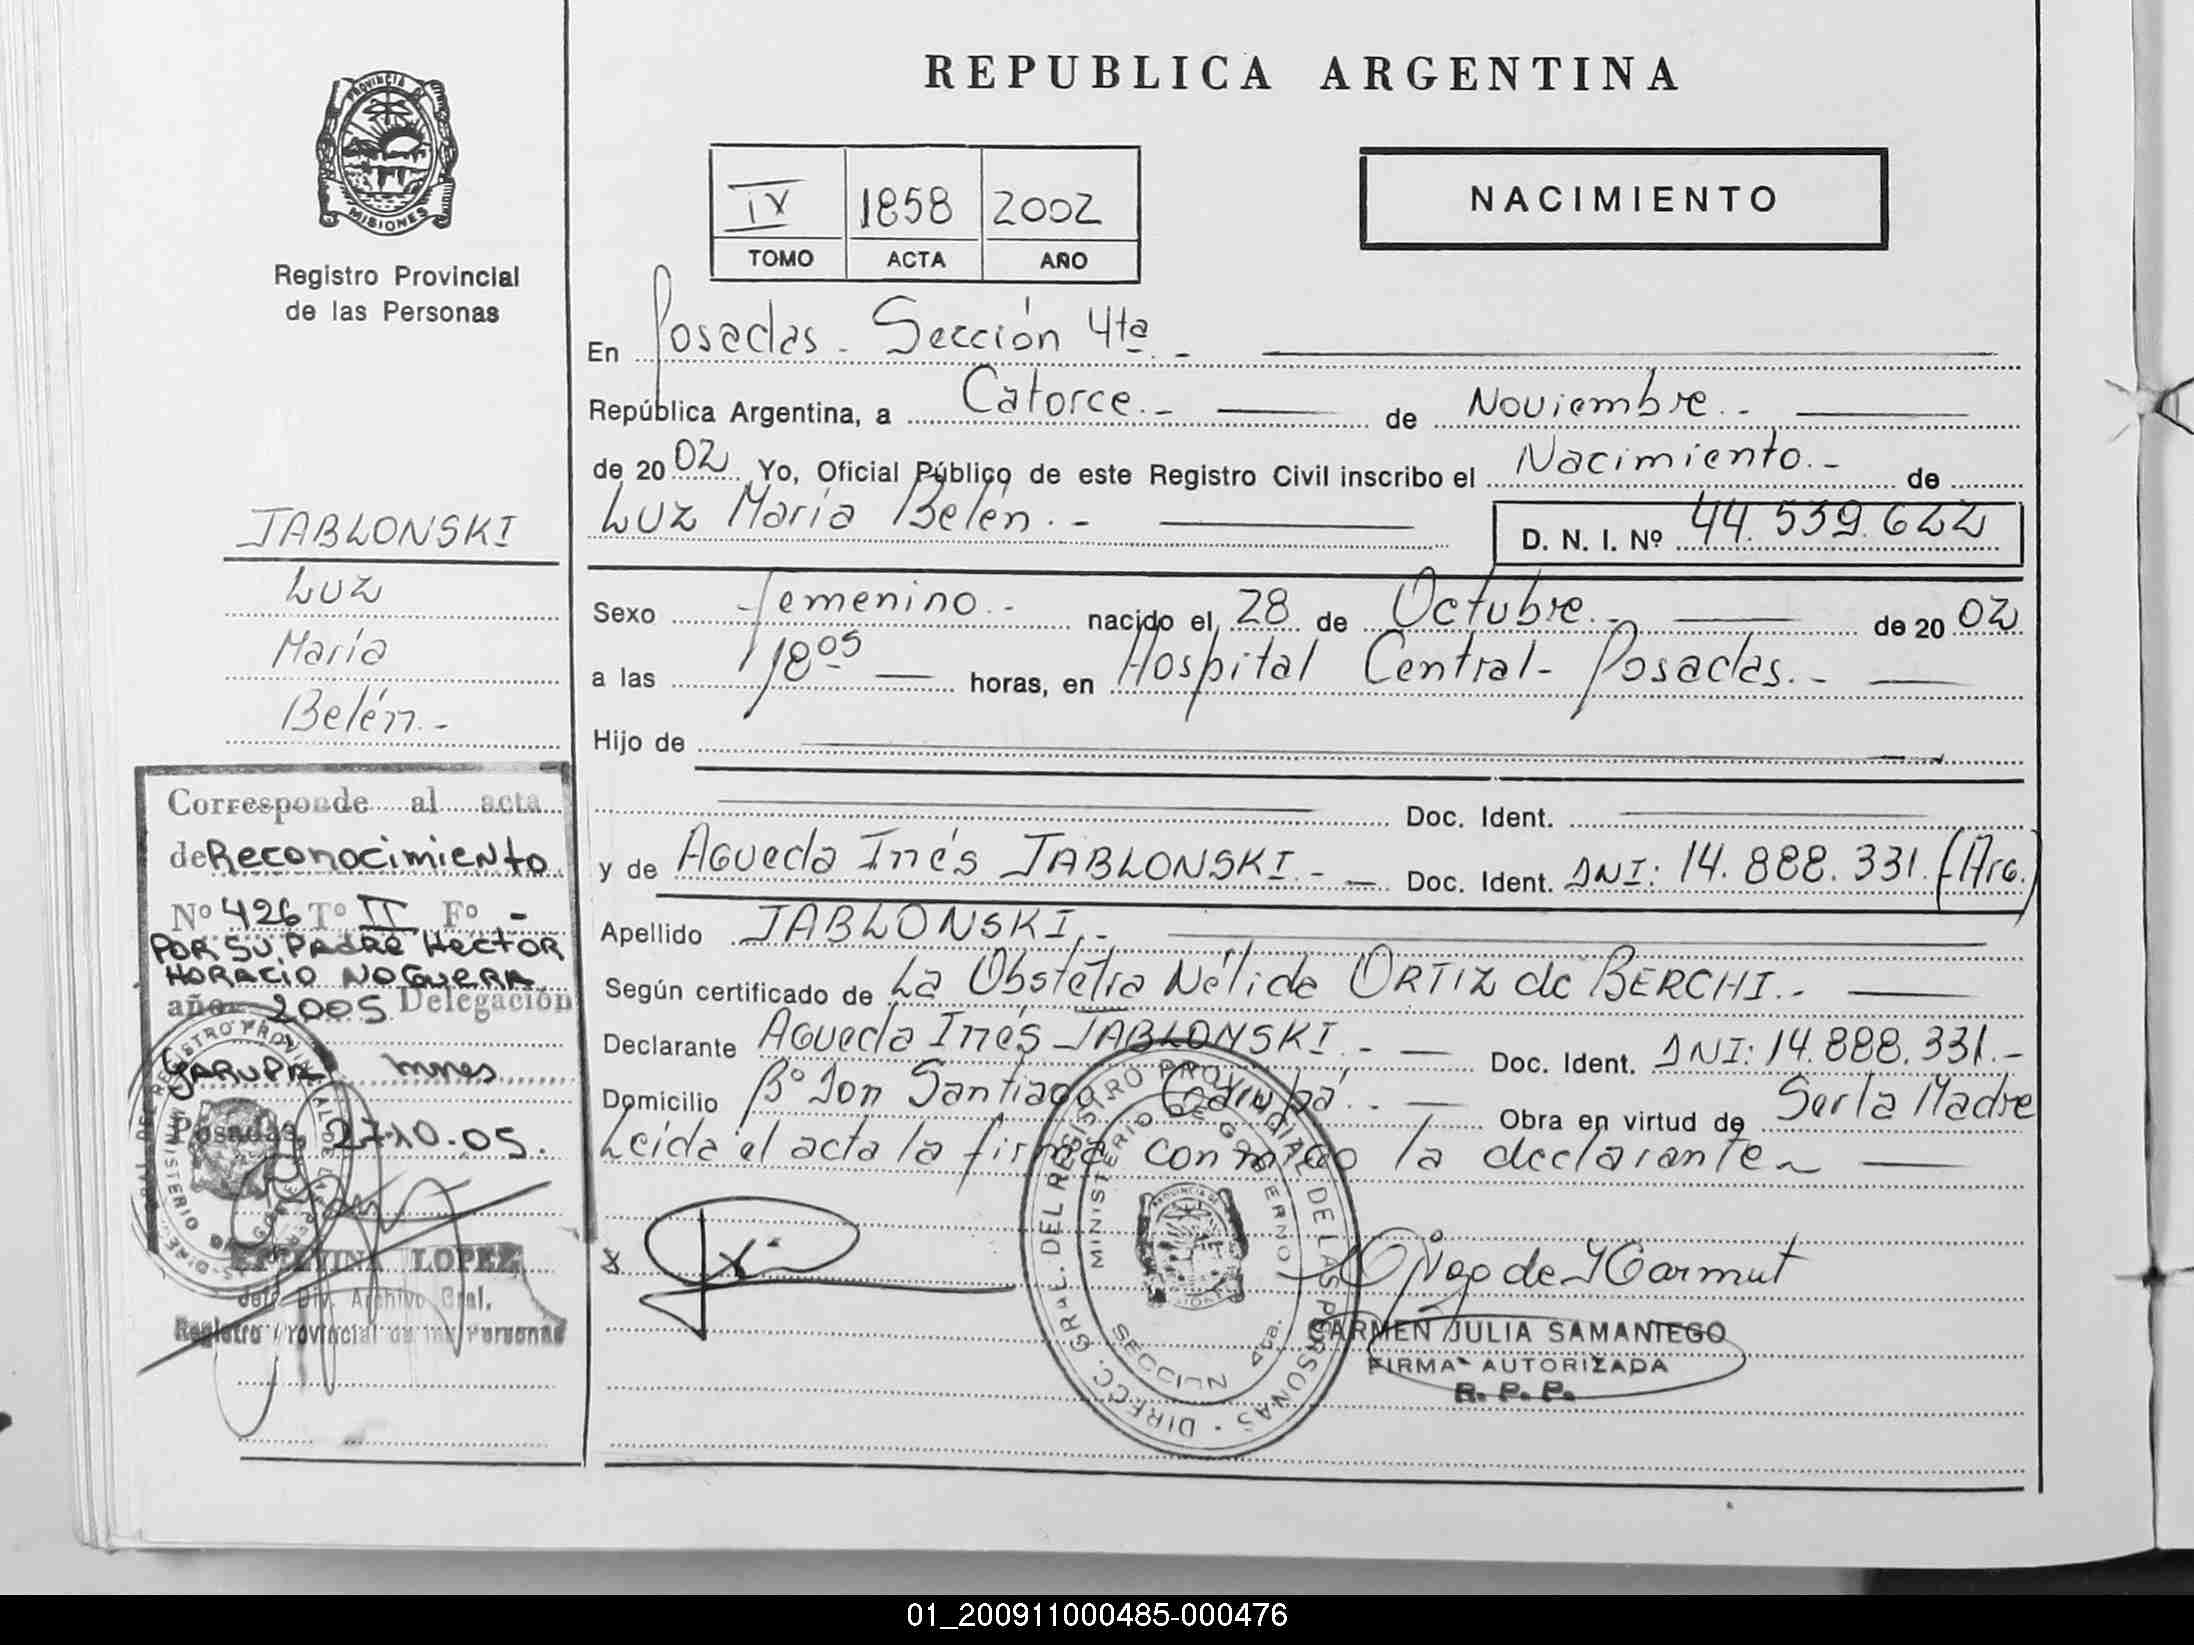 REPUBLICA ARGENTINA
PROVINCIA DE
MISIONES
Registro Provincial
de las Personas
IV 1858 2002
TOMO ACTA AÑO
NACIMIENTO
En Posadas - Sección 4ta. -
República Argentina, a Catorce. - de Noviembre. -
de 2002 Yo, Oficial Público de este Registro Civil inscribo el Nacimiento. - de
Luz María Belén. - D. N. I. Nº 44.539.622
JABLONSKI
Luz
María
Belén. -
Sexo femenino. - nacido el 28 de Octubre. - de 2002
a las 18 05 horas, en Hospital Central - Posadas. -
Hijo de
Doc. Ident.
y de Agueda Inés JABLONSKI. - Doc. Ident. DNI: 14.888.331. (Arg.)
Apellido JABLONSKI. -
Según certificado de La Obstétra Nélida ORTIZ de BERCHI. -
Declarante Agueda Inés JABLONSKI. - Doc. Ident. DNI: 14.888.331. -
Domicilio Bº Don Santiago Garupá. - Obra en virtud de Ser la Madre
Leída el acta la firma conmigo la declarante
Corresponde al acta
de Reconocimiento
Nº 426 Tº II Fº -
POR SU PADRE HECTOR
HORACIO NOGUERA
año 2005 Delegación
GARUPA mnes
Posadas, 27.10.05.
LOPEZ
Jefe Div. Archivo Gral.
Registro Provincial de las Personas
DIRECC. GRAL. DEL REGISTRO PROVINCIAL DE LAS PERSONAS
MINISTERIO DE GOBIERNO
SECCION 4ta.
CARMEN JULIA SAMANIEGO
FIRMA AUTORIZADA
R. P. P.
01_200911000485-000476